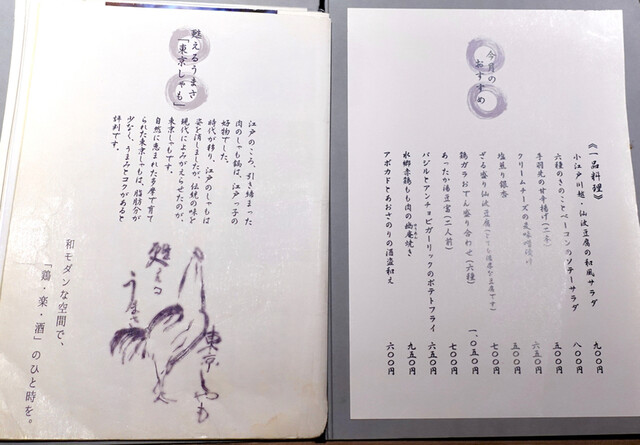 甦えるうまさ
「東京しゃも」
江戸のころ、引き締まった
肉のしゃもは、江戸っ子の
好物でした。
時代が移り、江戸のしゃもは
姿を消しましたが、伝統の味を
現代によみがえらせたのが、
東京しゃもです。
自然に恵まれた多摩で育て
られた東京しゃもは、脂肪分が
少なく、うまみとコクがあると
評判です。
甦える
うまさ
東京しゃも
和モダンな空間で、
「鶏・楽・酒」のひと時を。
今月の
おすすめ
《一品料理》
小江戸川越・仙波豆腐の和風サラダ 九〇〇円
六種のきのことベーコンのソテーサラダ 八〇〇円
手羽先の甘辛揚げ(二本) 五〇〇円
クリームチーズの麦味噌漬け 六五〇円
塩煎り銀杏 五〇〇円
ざる盛り仙波豆腐(とても濃厚な豆腐です) 七〇〇円
鶏ガラおでん盛り合わせ(六種) 一、〇五〇円
あったか湯豆富(二人前) 七〇〇円
バジルとアンチョビガーリックのポテトフライ 六五〇円
水郷赤鶏もも肉の幽庵焼き 九五〇円
アボカドとあおさのりの酒盗和え 六〇〇円